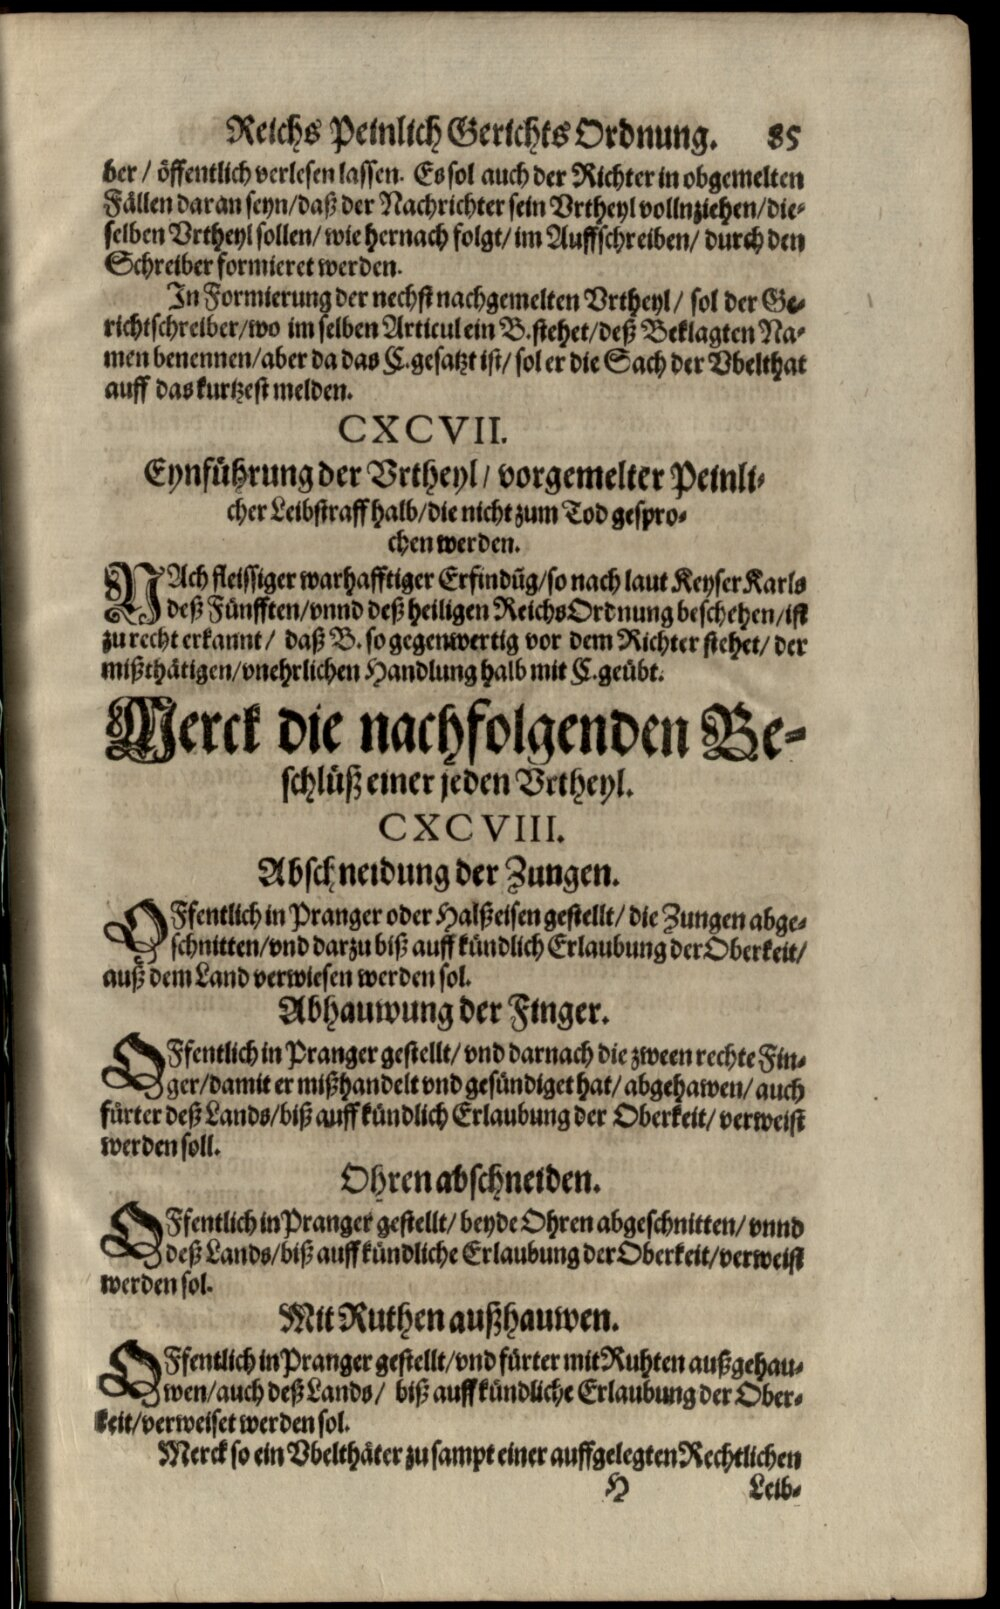 Reichs Peinlich Gerichts Ordnung. 85
ber / öffentlich verlesen lassen. Es sol auch der Richter in obgemelten
Fällen daran seyn/daß der Nachrichter sein Vrtheyl vollnziehen/die-
selben Vrtheyl sollen/ wie hernach folgt/ im Auffschreiben/ durch den
Schreiber formieret werden.
In Formierung der nechst nachgemelten Vrtheyl/ sol der Ge-
richtschreiber/wo im selben Articul ein B. stehet/deß Beklagten Na-
men benennen/aber da das C. gesatzt ist/ sol er die Sach der Vbelthat
auff das kurtzest melden.
CXCVII.
Eynführung der Vrtheyl/ vorgemelter Peinli-
cher Leibstraff halb/die nicht zum Tod gespro-
chen werden.
NAch fleissiger warhafftiger Erfindūg/so nach laut Keyser Karls
deß Fünfften/vnnd deß heiligen Reichs Ordnung beschehen/ist
zu recht erkannt/ daß B. so gegenwertig vor dem Richter stehet/ der
mißthätigen/vnehrlichen Handlung halb mit C. geübt.
Merck die nachfolgenden Be-
schlüß einer jeden Vrtheyl.
CXCVIII.
Abschneidung der Zungen.
OFfentlich in Pranger oder Halßeisen gestellt/ die Zungen abge-
schnitten/vnd darzu biß auff kündlich Erlaubung der Oberkeit/
auß dem Land verwiesen werden sol.
Abhauwung der Finger.
OFfentlich in Pranger gestellt/ vnd darnach die zween rechte Fin-
ger/damit er mißhandelt vnd gesündiget hat/ abgehawen/ auch
fürter deß Lands/biß auff kündlich Erlaubung der Oberkeit/ verweist
werden soll.
Ohren abschneiden.
OFfentlich in Pranger gestellt/ beyde Ohren abgeschnitten/ vnnd
deß Lands/biß auff kündliche Erlaubung der Oberkeit/verweist
werden sol.
Mit Ruthen außhauwen.
OFfentlich in Pranger gestellt/vnd fürter mit Ruhten außgehau-
wen/auch deß Lands/ biß auff kündliche Erlaubung der Ober-
keit/verweiset werden sol.
Merck so ein Vbelthäter zu sampt einer auffgelegten Rechtlichen
H Leib-